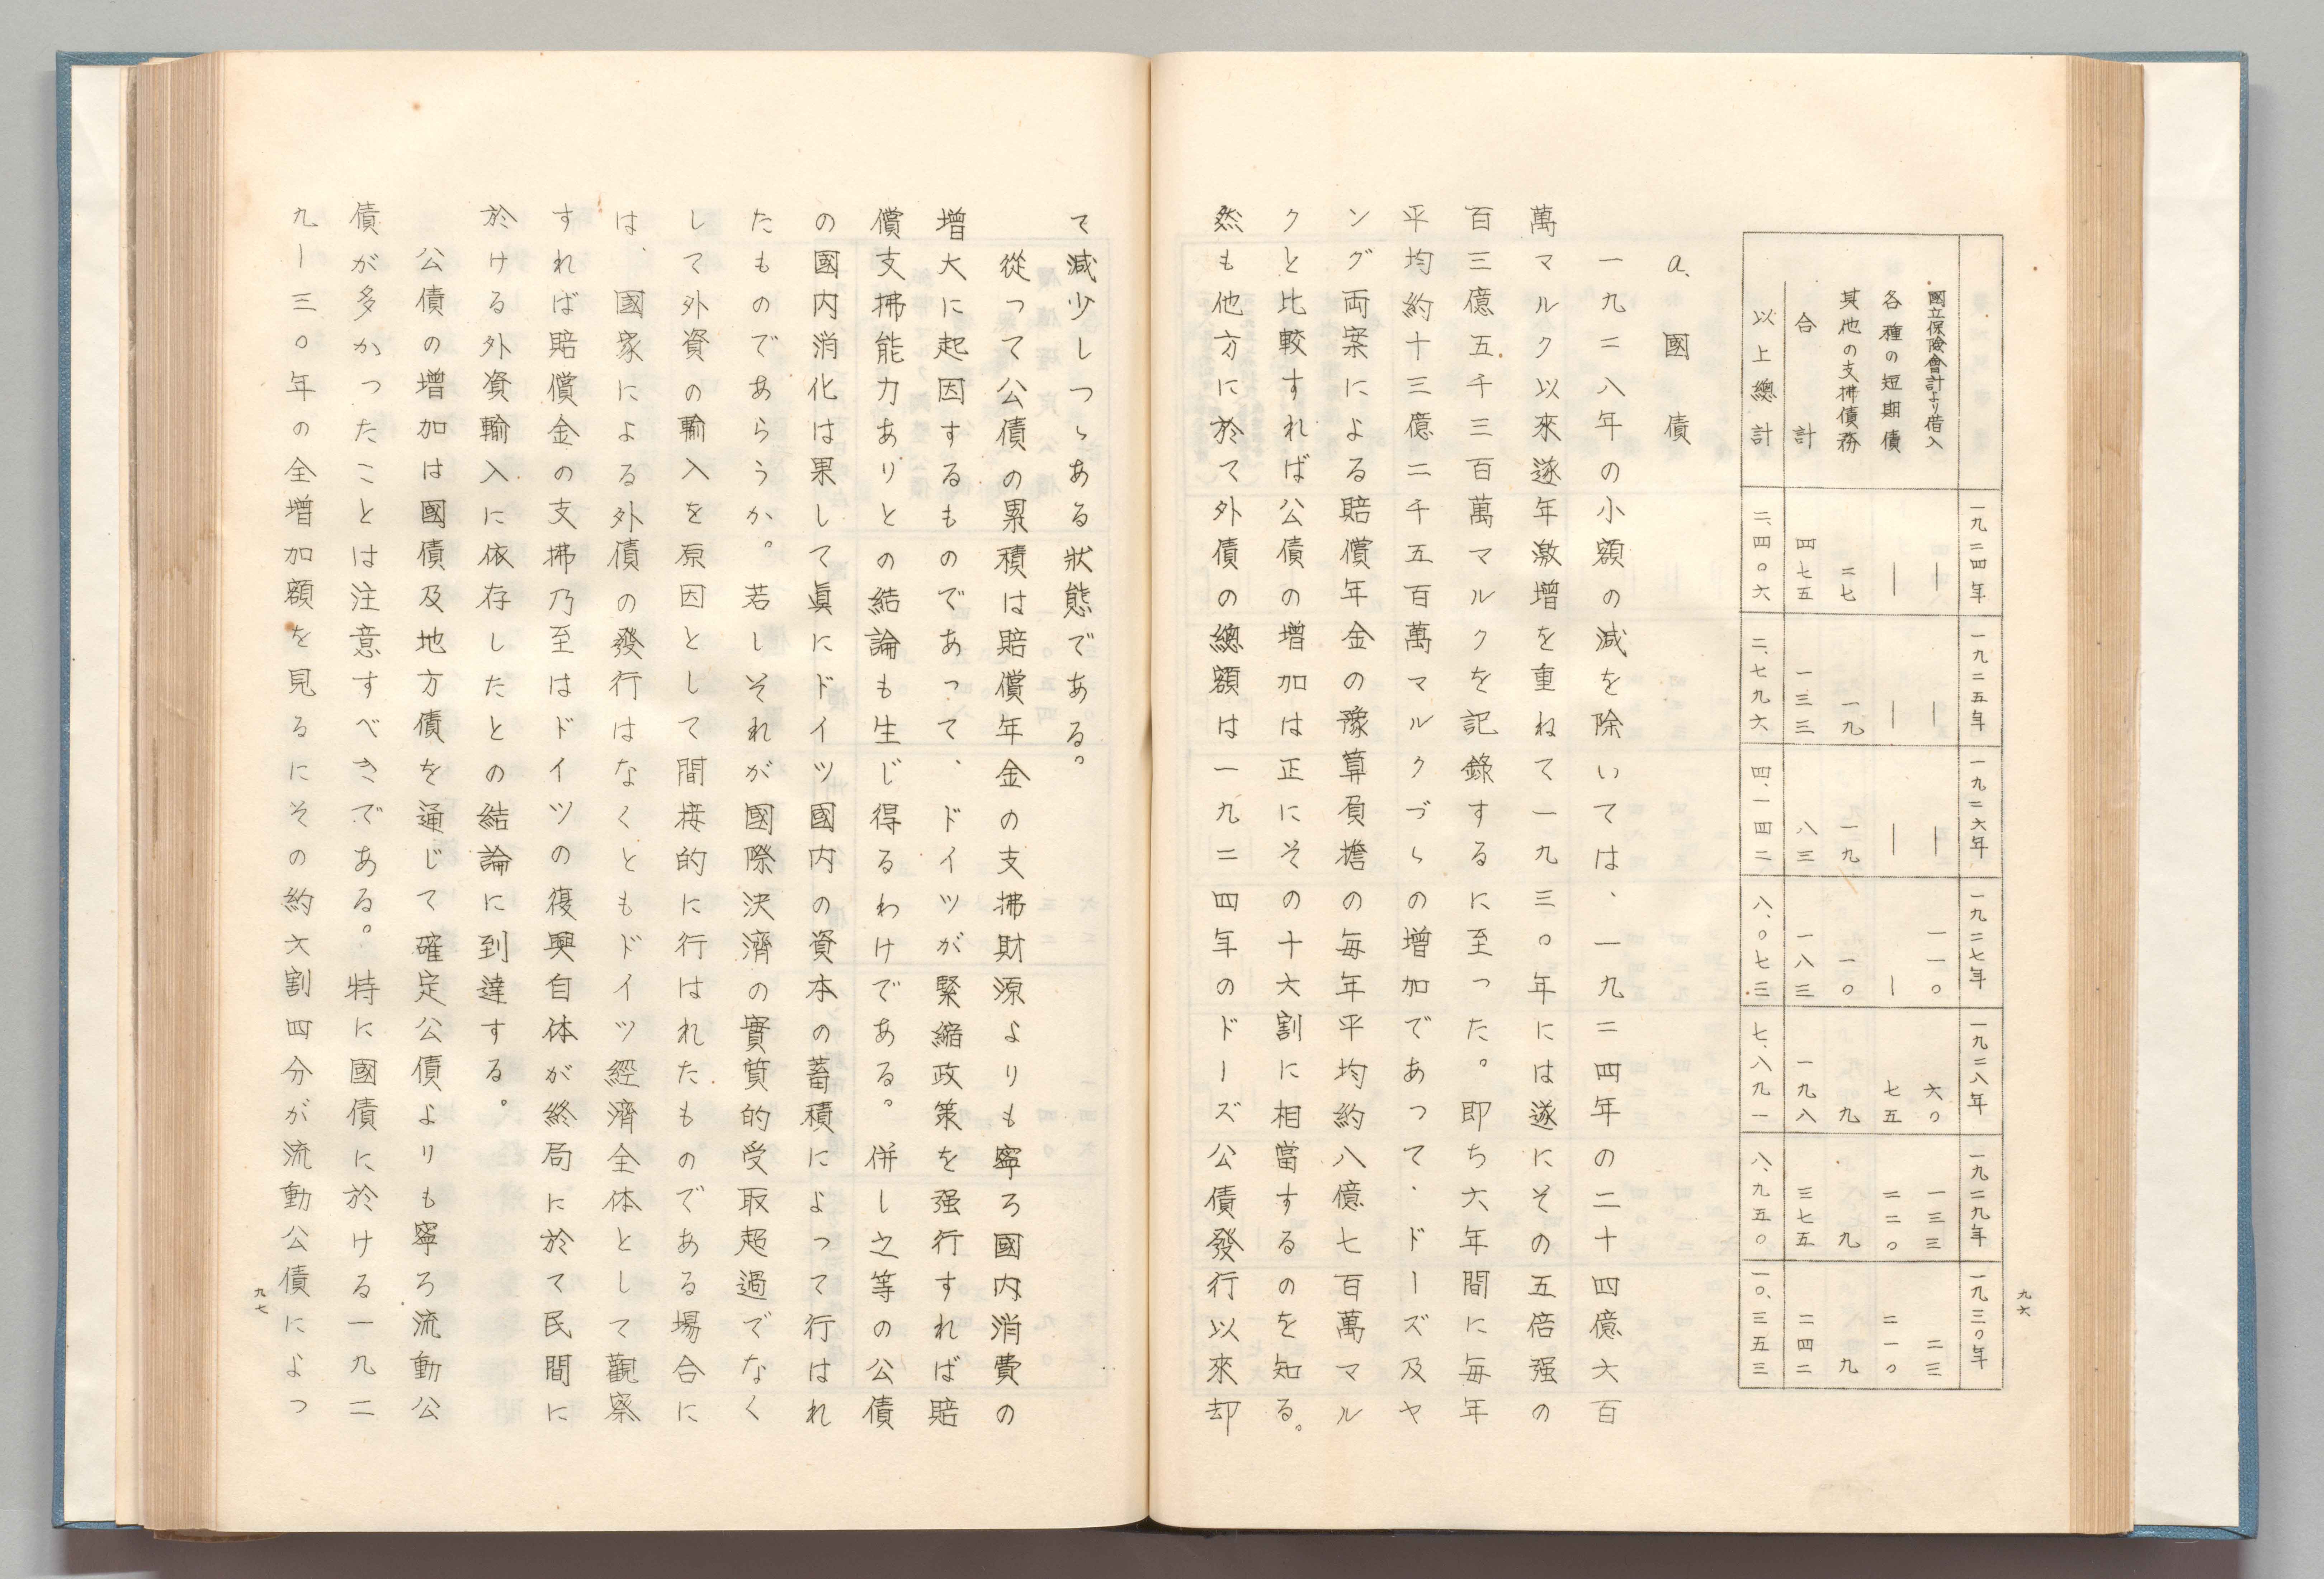 一九二四年 一九二五年 一九二六年 一九二七年 一九二八年 一九二九年 一九三〇年
國立保険會計より借入 ― ― ― 一一〇 六〇 一三三 二三
各種の短期債 ― ― ― ― 七五 二二〇 二一〇
其他の支拂債務 二七 一九 一九 一〇 九 九 九
合計 四七五 一三三 八三 一八三 一九八 三七五 二四二
以上總計 二、四〇六 二、七九六 四、一四二 八、〇七三 七、八九一 八、九五〇 一〇、三五三
a、國債
一九二八年の小額の減を除いては、一九二四年の二十四億六百
萬マルク以來逐年激增を重ねて一九三〇年には遂にその五倍强の
百三億五千三百萬マルクを記錄するに至った。即ち六年間に毎年
平均約十三億二千五百萬マルクづゝの增加であって、ドーズ及ヤ
ング両案による賠償年金の豫算負擔の毎年平均約八億七百萬マル
クと比較すれば公債の增加は正にその十六割に相當するのを知る。
然も他方に於て外債の總額は一九二四年のドーズ公債發行以來却
九六
て減少しつゝある狀態である。
從って公債の累積は賠償年金の支拂財源よりも寧ろ國内消費の
增大に起因するものであって、ドイツが緊縮政策を强行すれば賠
償支拂能力ありとの結論も生じ得るわけである。併し之等の公債
の國内消化は果して眞にドイツ國内の資本の蓄積によって行はれ
たものであらうか。若しそれが國際決濟の實質的受取超過でなく
して外資の輸入を原因として間接的に行はれたものである場合に
は、國家による外債の發行はなくともドイツ經濟全体として觀察
すれば賠償金の支拂乃至はドイツの復興自体が終局に於て民間に
於ける外資輸入に依存したとの結論に到達する。
公債の增加は國債及地方債を通じて確定公債よりも寧ろ流動公
債が多かったことは注意すべきである。特に國債に於ける一九二
九ー三〇年の全增加額を見るにその約六割四分が流動公債によつ
九七